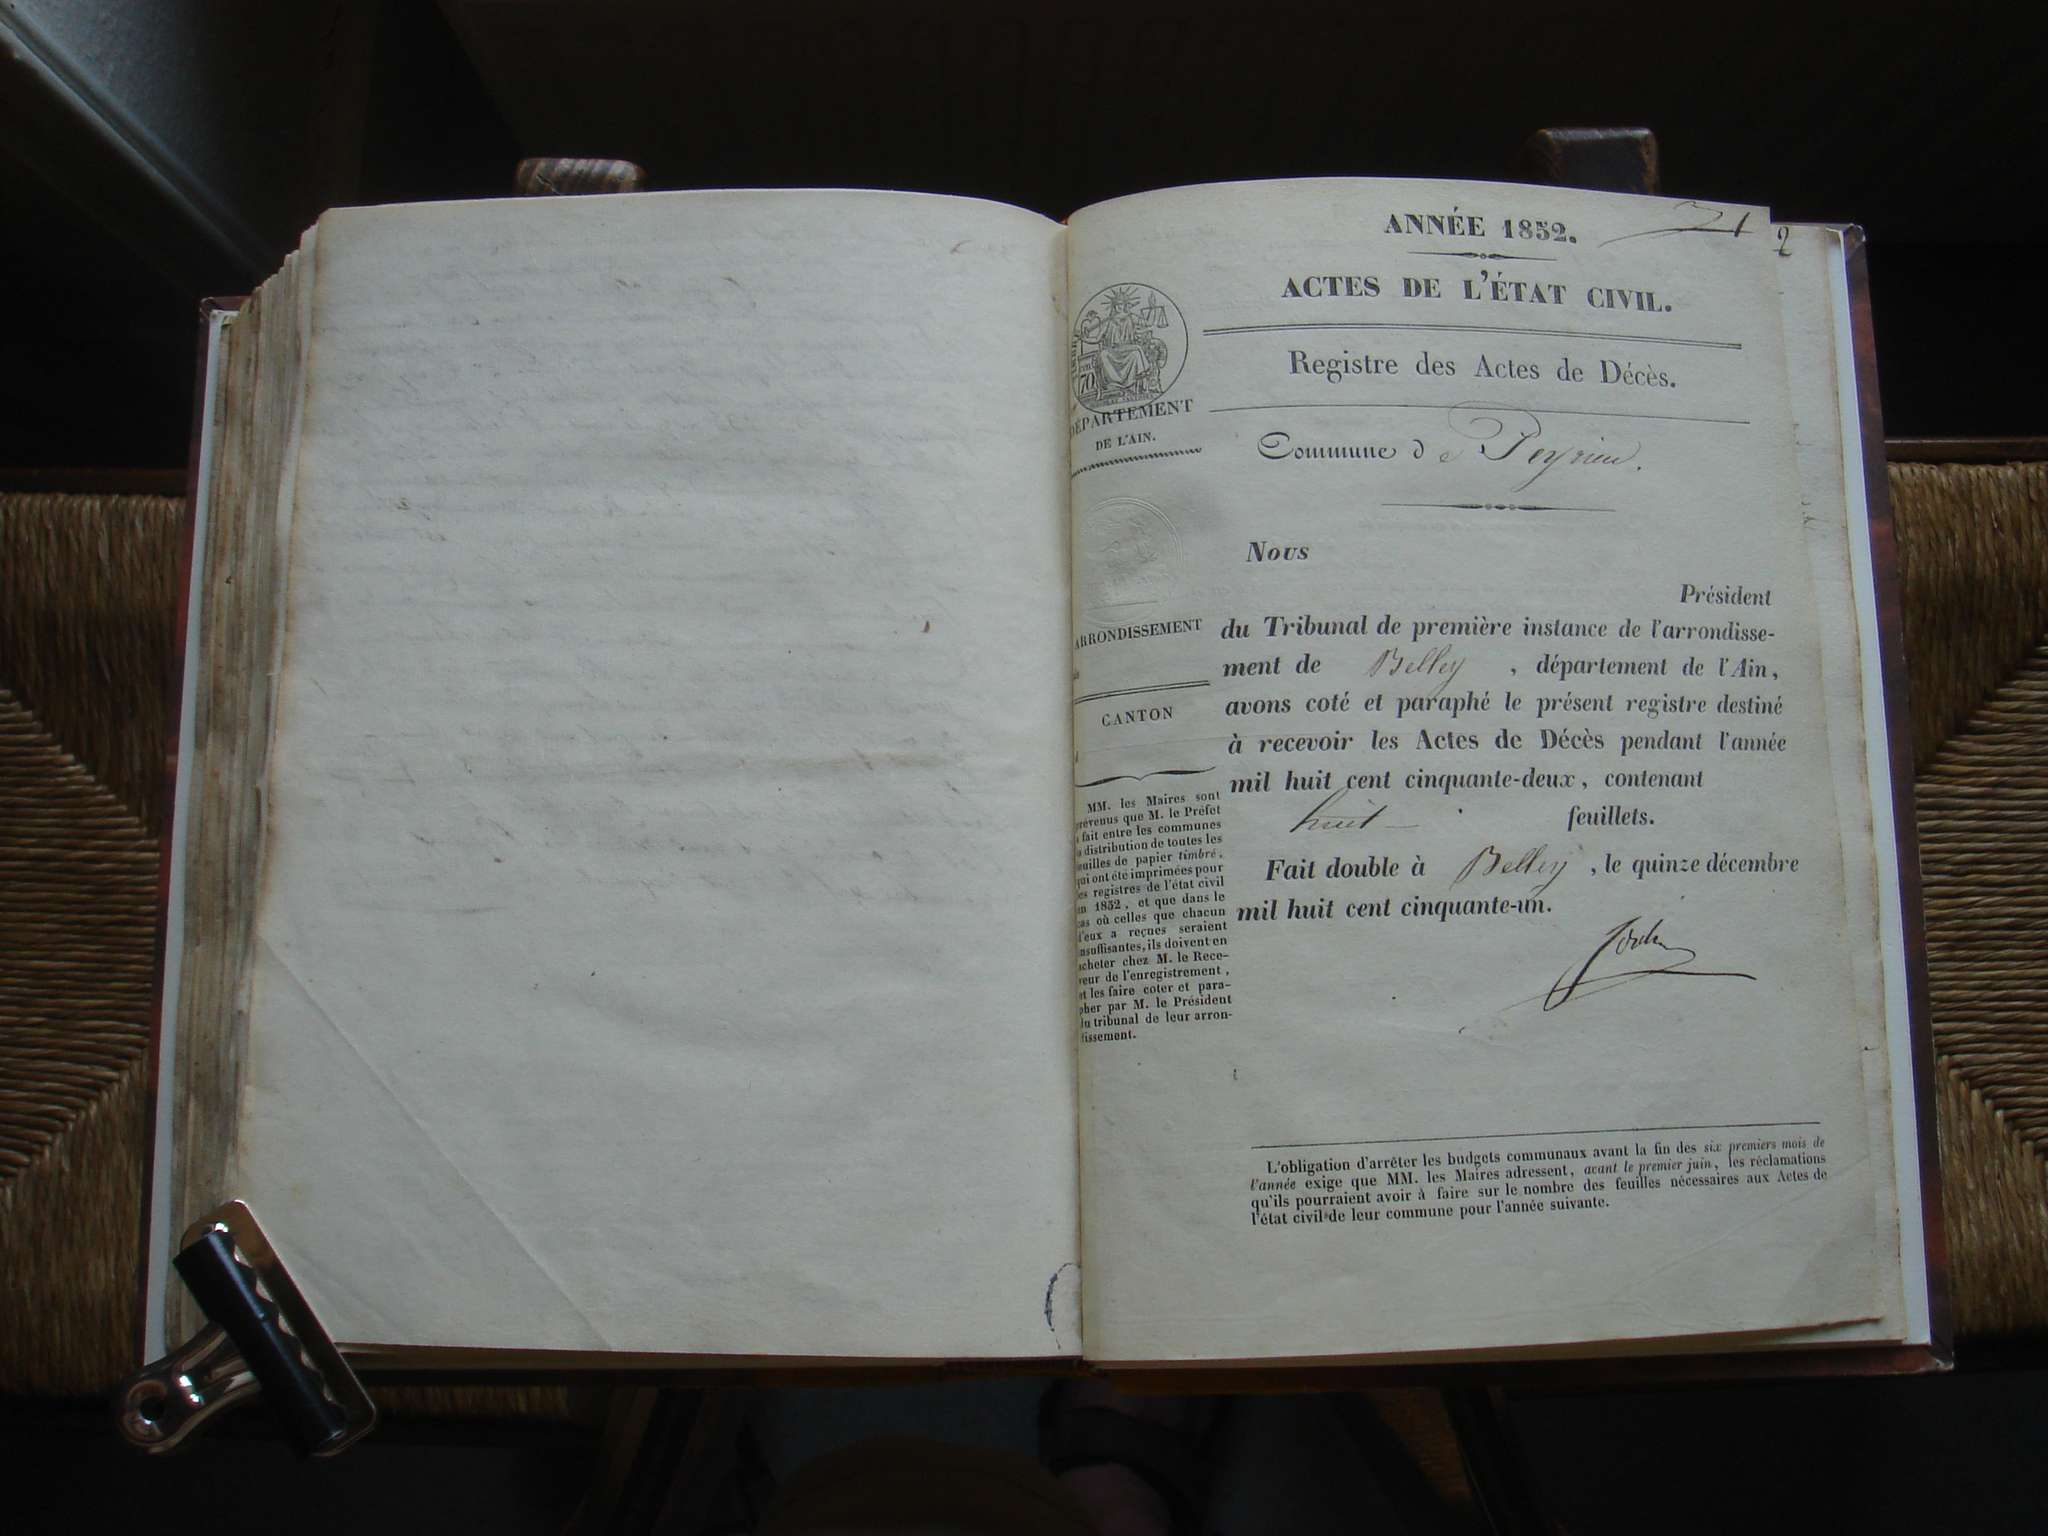 ANNÉE 1852.
71
2
ACTES DE L'ÉTAT CIVIL.
Registre des Actes de Décès.
70
DÉPARTEMENT
DE L'AIN.
Commune de Peyrieu.
Nous
Président
du Tribunal de première instance de l'arrondisse-
ment de Belley, département de l'Ain,
avons coté et paraphé le présent registre destiné
à recevoir les Actes de Décès pendant l'année
mil huit cent cinquante-deux, contenant
huit feuillets.
Fait double à Belley, le quinze décembre
mil huit cent cinquante-un.
ARRONDISSEMENT
CANTON
MM. les Maires sont
prévenus que M. le Préfet
a fait entre les communes
la distribution de toutes les
feuilles de papier timbré,
qui ont été imprimées pour
les registres de l'état civil
en 1852, et que dans le
cas où celles que chacun
d'eux a reçues seraient
insuffisantes, ils doivent en
acheter chez M. le Rece-
veur de l'enregistrement,
et les faire coter et para-
pher par M. le Président
du tribunal de leur arron-
dissement.
L'obligation d'arrêter les budgets communaux avant la fin des six premiers mois de
l'année exige que MM. les Maires adressent, avant le premier juin, les réclamations
qu'ils pourraient avoir à faire sur le nombre des feuilles nécessaires aux Actes de
l'état civil de leur commune pour l'année suivante.